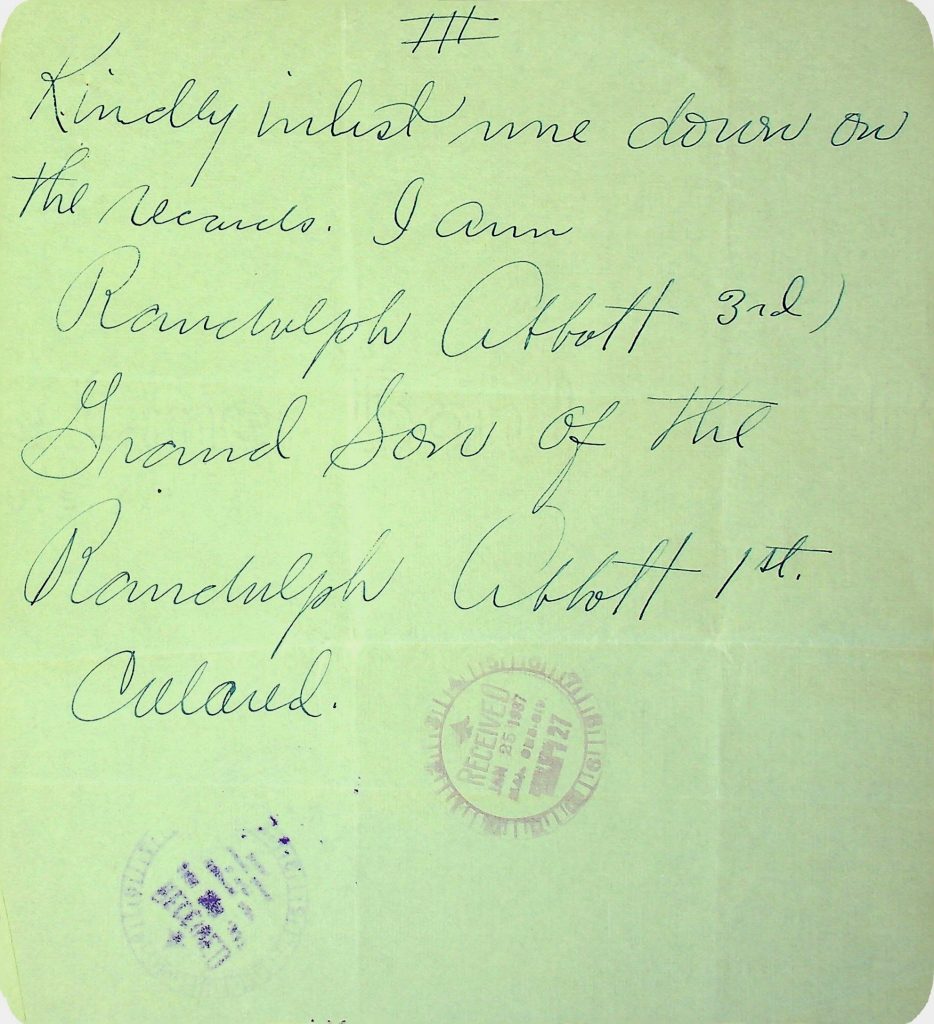 III
Kindly inlist me down on
the records. I am
Randolph Abbott 3rd)
Grand Son of the
Randolph Abbott 1st.
Colored.
RECEIVED
JAN 25 1937